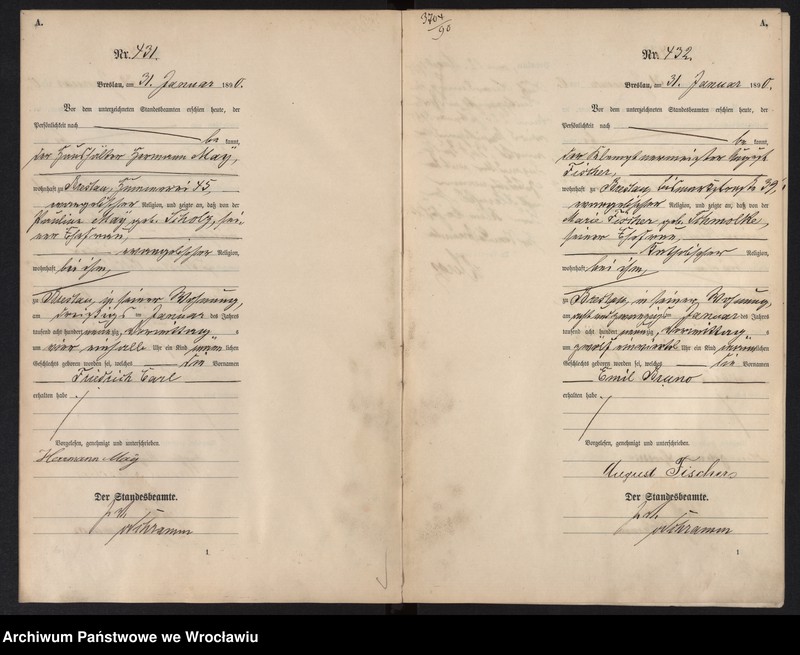 A.
Nr. 431.
Breslau, am 31. Januar 1890.
Vor dem unterzeichneten Standesbeamten erschien heute, der
Persönlichkeit nach
be kannt,
der Haushälter Hermann May,
wohnhaft zu Breslau, Hummerei 45,
evangelischer Religion, und zeigte an, daß von der
Pauline May, geb. Scholz, sei-
ner Ehefrau,
evangelischer Religion,
wohnhaft bei ihm,
zu Breslau, in seiner Wohnung,
am dreißigsten Januar des Jahres
tausend acht hundert neunzig, Vormittag s
um vier einhalb Uhr ein Kind männ lichen
Geschlechts geboren worden sei, welches die Vornamen
Friedrich Carl
erhalten habe.
Vorgelesen, genehmigt und unterschrieben.
Hermann May
Der Standesbeamte.
Schramm
1
3704/90
A.
Nr. 432.
Breslau, am 31. Januar 1890.
Vor dem unterzeichneten Standesbeamten erschien heute, der
Persönlichkeit nach
be kannt,
der Klempnermeister August
Fischer,
wohnhaft zu Breslau, Bismarckstraße 39,
evangelischer Religion, und zeigte an, daß von der
Maria Fischer geb. Schmolke,
seiner Ehefrau,
katholischer Religion,
wohnhaft bei ihm,
zu Breslau, in seiner Wohnung,
am acht und zwanzigsten Januar des Jahres
tausend acht hundert neunzig Vormittag s
um zwölf einviertel Uhr ein Kind männlichen
Geschlechts geboren worden sei, welches die Vornamen
Emil Bruno
erhalten habe.
Vorgelesen, genehmigt und unterschrieben.
August Fischer
Der Standesbeamte.
Schramm
1
Archiwum Państwowe we Wrocławiu